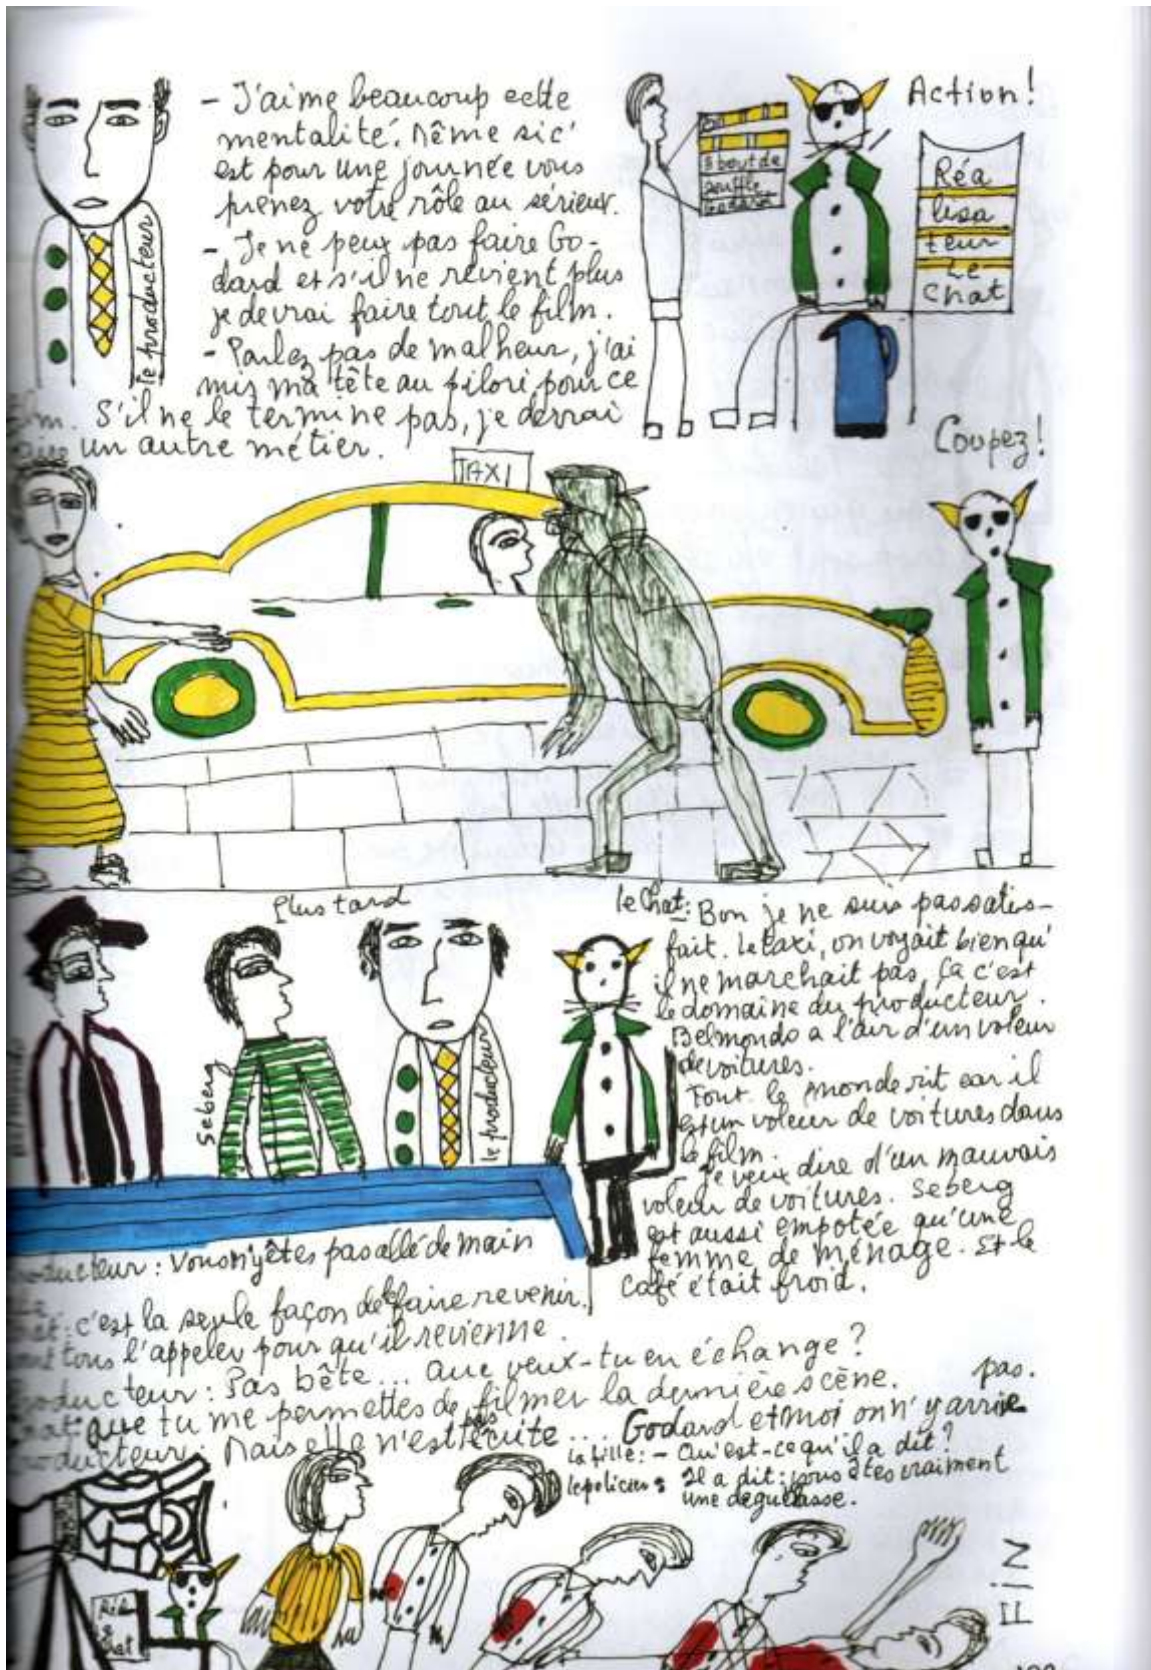 - J'aime beaucoup cette
mentalité. Même si c'
est pour une journée vous
prenez votre rôle au sérieux.
- Je ne peux pas faire Go-
dard et s'il ne revient plus
je devrai faire tout le film.
- Parlez pas de malheur, j'ai
mis ma tête au pilori pour ce
S'il ne le termine pas, je devrai
un autre métier.
le producteur
à bout de
souffle
Godard
Action!
Réa
lisa
teur
Le
Chat
Coupez!
TAXI
Plus tard
Seberg
le producteur
le Chat:
- Bon je ne suis pas satis-
fait. le taxi, on voyait bien qu'
il ne marchait pas, ça c'est
le domaine du producteur.
Belmondo a l'air d'un voleur
de voitures.
Tout le monde rit car il
est un voleur de voitures dans
le film.
- Je veux dire d'un mauvais
voleur de voitures. Seberg
est aussi empotée qu'une
femme de ménage. Et le
café était froid.
producteur: Vous n'y êtes pas allé de main
c'est la seule façon de le faire revenir.
tous l'appeler pour qu'il revienne.
Producteur: Pas bête... que veux-tu en échange?
que tu me permettes de filmer la dernière scène.
producteur: Mais elle n'est pas écrite... Godard et moi on n'y arrive
pas.
la fille: - Qu'est-ce qu'il a dit?
le policier: Il a dit: vous êtes vraiment
une dégulasse.
FIN